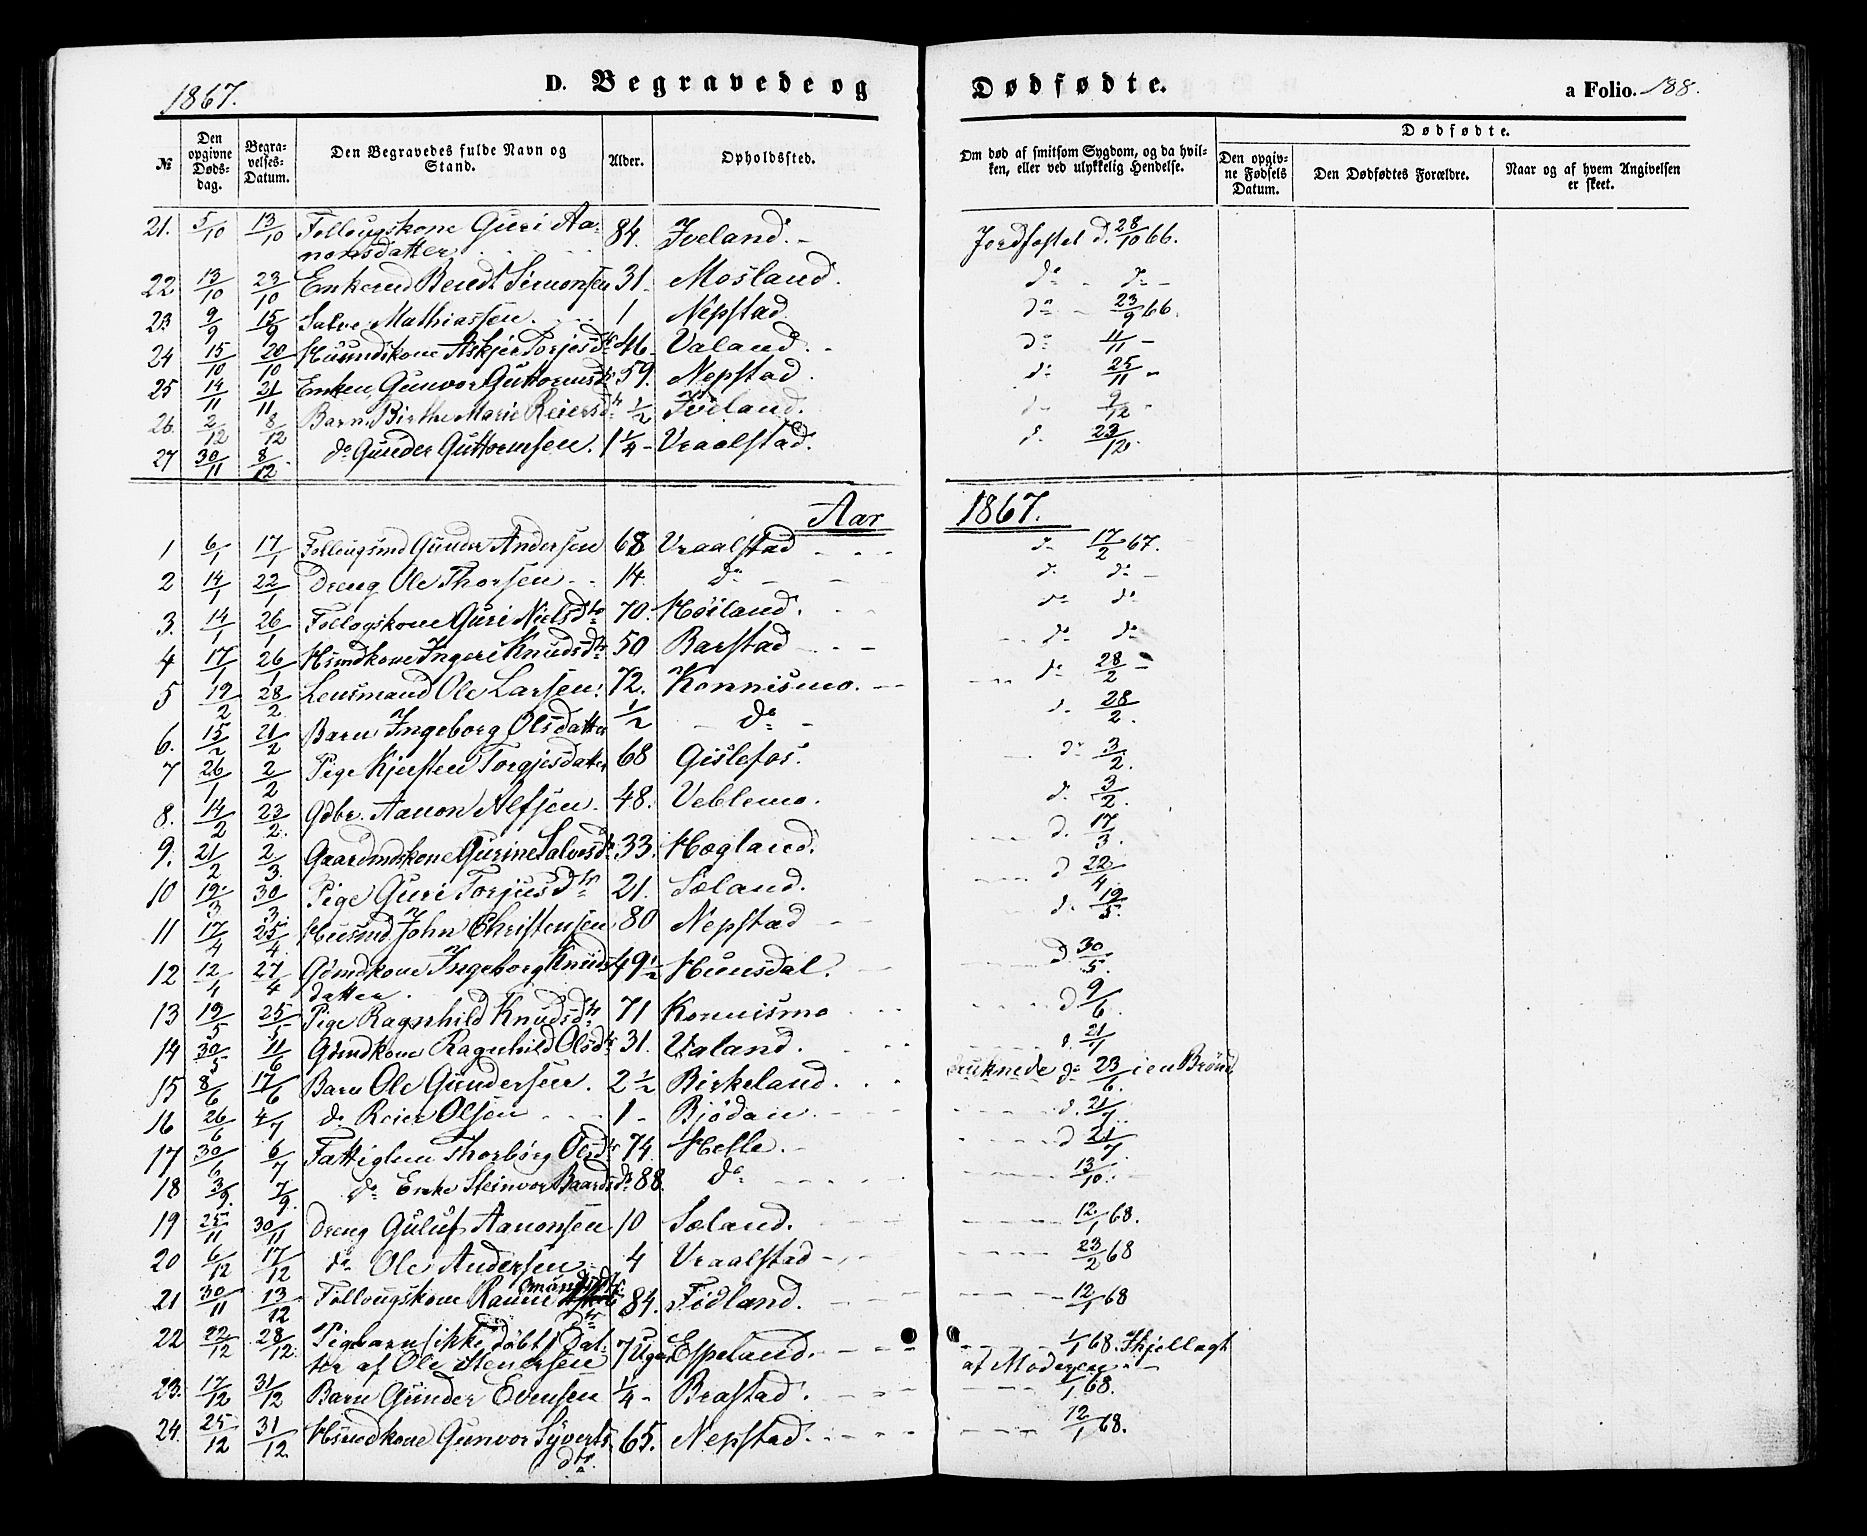 1867.
D. Begravede og
Dødfødte.
a Folio. 188.
№
Den opgivne Døds-dag.
Begra-velses-Datum.
Den Begravedes fulde Navn og Stand.
Alder.
Opholdssted.
Om død af smitsom Sygdom, og da hvil-ken, eller ved ulykkelig Hendelse.
Dødfødte.
Den opgiv-ne Fødsels Datum.
Den Dødfødtes Forældre.
Naar og af hvem Angivelsen er skeet.
21. 5/10 13/10 Follougskone Guri Aa- 84. Iveland. Jordfæstet d. 28/10 66.
nonsdatter
22 13/10 23/10 Enkemd Bendt Simonsen 31. Mosland. do do
23 9/9 15/9 Salve Mathiassen. 1 Nepstad. do 23/9 66.
24 15/10 20/10 Huusmdskone Askjer Torjesdtr 46 Valand. do 11/11
25 14/11 21/11 Enken Gunvor Guttormsdtr 59. Nepstad. do 25/11
26. 2/12 8/12 Barn Birthe Marie Reiersdtr 1/2 Iveland. do 9/12
27 30/11 8/12 do Gunder Guttormsen. 1 1/4 Vraalstad. d. 23/12.
Aar 1867.
1 6/1 17/1 Follougsmd Gunder Andersen 68 Vraalstad do 17/2 67.
2 14/1 22/1 Dreng Ole Thorsen 14. do d. do
3. 14/1 26/1 Follogskone Guri Nielsdtr 70. Høiland. do do
4 17/1 26/1 Hsmdkone Ingeri Knudsdtr 50 Barstad do do
5 19/2 28/2 Lensmand Ole Larsen 72. Konnismo. do 28/2
6. 15/2 21/2 Barn Ingeborg Olsdatter 1/2 do d. 28/2.
7 26/1 2/2 Pige Kjersten Torgjesdatter 68 Gislefos. do 3/2.
8. 14/2 23/2. Gdbr. Aanon Alfsen. 48. Veblemo. d. 3/2.
9. 21/2 2/3. Gaardmdskone Gurine Salvesdtr 33. Hægland. d. 17/3.
10 19/3 30/3. Pige Guri Torjusdtr 21. Sæland. d 22/4.
11 17/4 25/4. Huusmd John Christensen 80 Nepstad d. 19/5.
12 12/4 27/4 Gdmdkone Ingeborg Knuds- 49 1/2 Hunsdal. d 30/5.
datter.
13 19/5 25/5 Pige Ragnhild Knudsdtr 71 Konnismo d 9/6.
14 30/5 11/6 Gdmdkone Ragnhild Olsdtr 31. Valand. d. 21/7
15 8/6 17/6 Barn Ole Gundersen. 2 1/2 Birkeland. druknede do 23/6. i en Brønd
16 26/6 4/7 do Reier Olsen 1 Bjødan d. 21/7
17 30/6 6/7 Fattiglem Thorborg Olsdtr 74. Helle. d 21/7.
18 3/9. 7/9. do Enke Steinvor Baardsdtr 88. do 13/10.
19 25/11 30/11 Dreng Guluf Aanonsen 10 Sæland. 12/1 68.
20 6/12 17/12 do Ole Andersen 4 Vraalstad 23/2 68
21 30/11 13/12 Follougskone 84. Fødland. 12/1 68
22 22/12 28/12. Pigebarn (ikke døbt) Dat- 7 Uger Espeland. 1/1 68. Ihjellagt
ter af Ole Stenersen af Moderen
23. 17/12 31/12 Barn Gunder Evensen 1/4 Brastad. 7/1 68.
24. 25/12 31/12 Hsmdkone Gunvor Syverts 65. Nepstad. 12/1 68.
dtr.